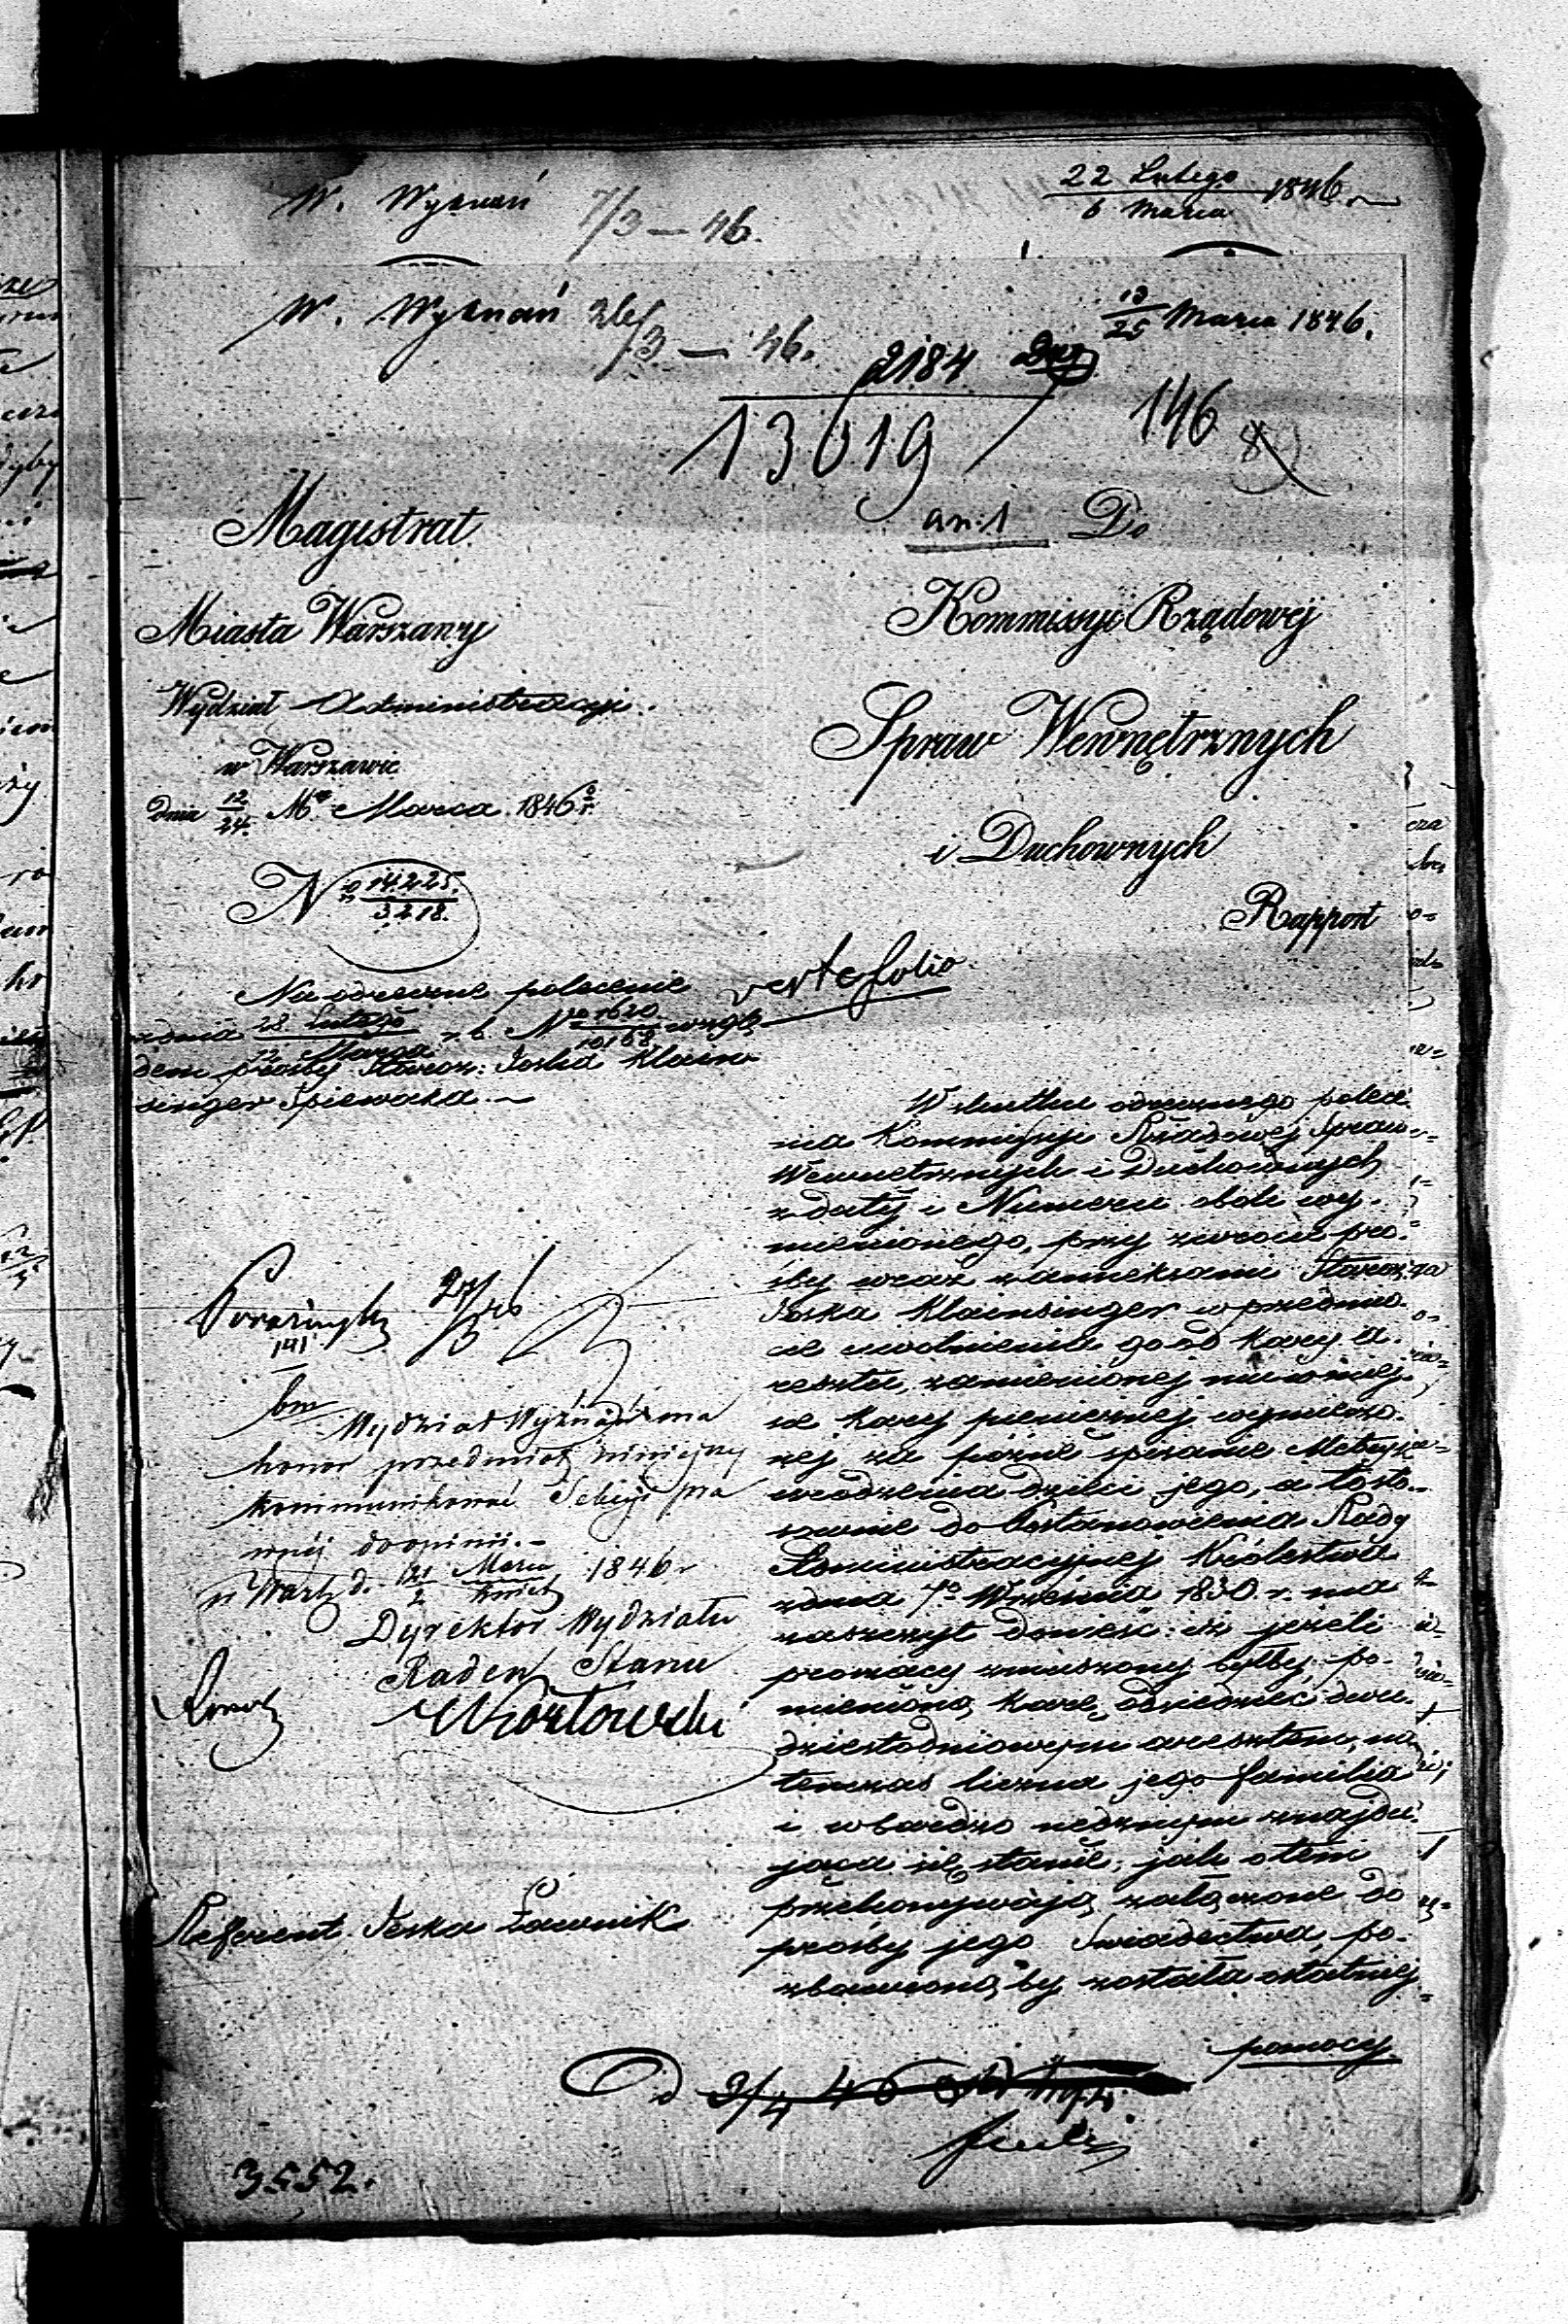 W. Wyznań 7/3 — 46.
22 Lutego
6 Marca 1846.
W. Wyznań 26/3 — 46.
13
25 Marca 1846.
2184
13019
146
an: 1
Magistrat
Miasta Warszawy
Wydział Administracyji.
w Warszawie
dnia 12
24. Marca 1846 r.
No 14225.
3218.
Na odręczne polecenie
z dnia 28 Lutego
12 Marca r. b. No 1620
10168 wzglę
dem prośby Starozk: Joska Klain
singer Śpiewaka.
verte folio
Do
Kommissyi Rządowej
Spraw Wewnętrznych
i Duchownych
Rapport
W skutku odręcznego polece
nia Kommissyi Rządowej Spraw
Wewnętrznych i Duchownych
z daty i Numeru obok wy-
mienionego, przy zwrocie pro-
śby wraz z annexami Starozk:
Joska Klainsinger w przedmio-
cie uwolnienia go od kary a-
resztu, zamienionej mu w miej-
sce kary pieniężnej wymierzo-
nej za późne spisanie Metryk
urodzenia dzieci jego, a to sto-
sownie do Postanowienia Rady
Administracyjnej Królestwa
z dnia 7o Września 1830. r. ma
zaszczyt donieść: iż jeżeli
proszący zmuszony byłby po-
mienioną karę odsiedzieć dwu-
dziestodniowym aresztem, na
tenczas liczna jego familia
i w bardzo nędznym znajdu-
jąca się stanie, jak o tem
przekonywają załączone do
prośby jego Świadectwa, po-
zbawioną by została ostatniej
pomocy
27/3 46
141
Wydział Wyznań ma
honor przedmiot niniejszy
kommunikować Sekcyi pra
wnej do opinii.-
w Warsz. d. 21 Marca
2 Kwiet 1846 r
Dyrektor Wydziału
Radca Stanu
Referent Jeska Ławnik
Od 2/4 46
3552.